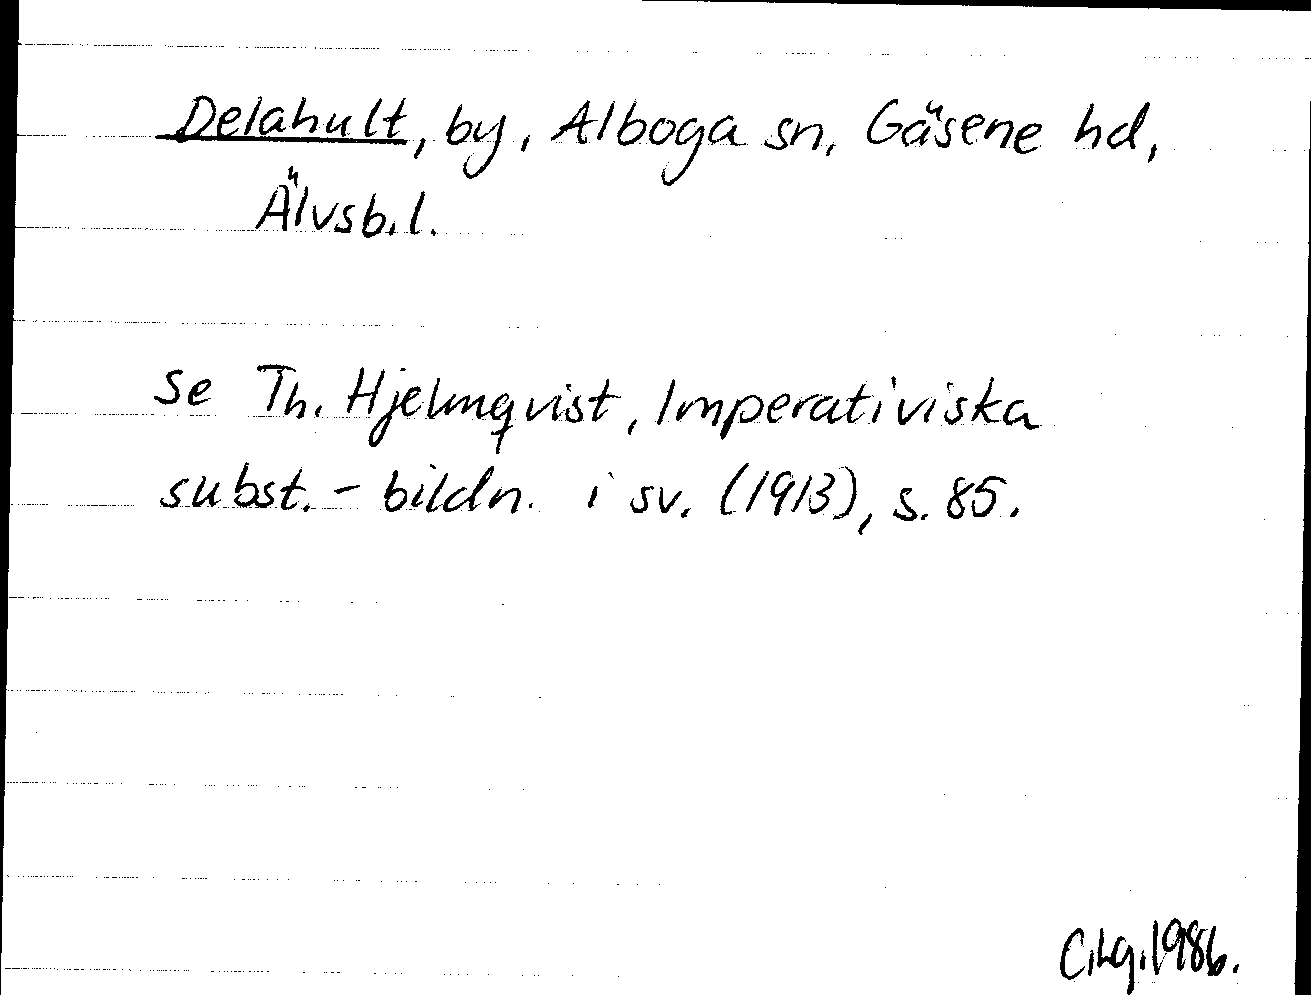 Delahult, by, Alboga sn, Gäsene hd,
Älvsb.l.
se Th. Hjelmqvist, Imperativiska
subst.-bildn. i sv. (1913), s. 85.
C.Lg.1986.